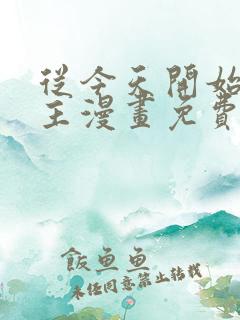 從今天開始
主漫畫免費
飯魚魚
未經同意禁止轉載